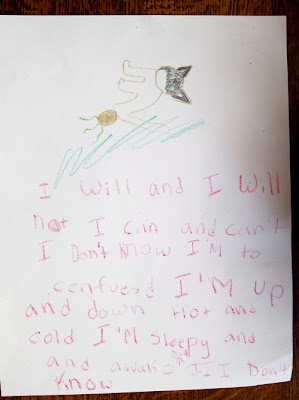 I will and I will
not I can and can't
I Don't Know I'M to
confuesd I'M up
and down Hot and
cold I'M Sleepy and
and awake III I Don't
Know